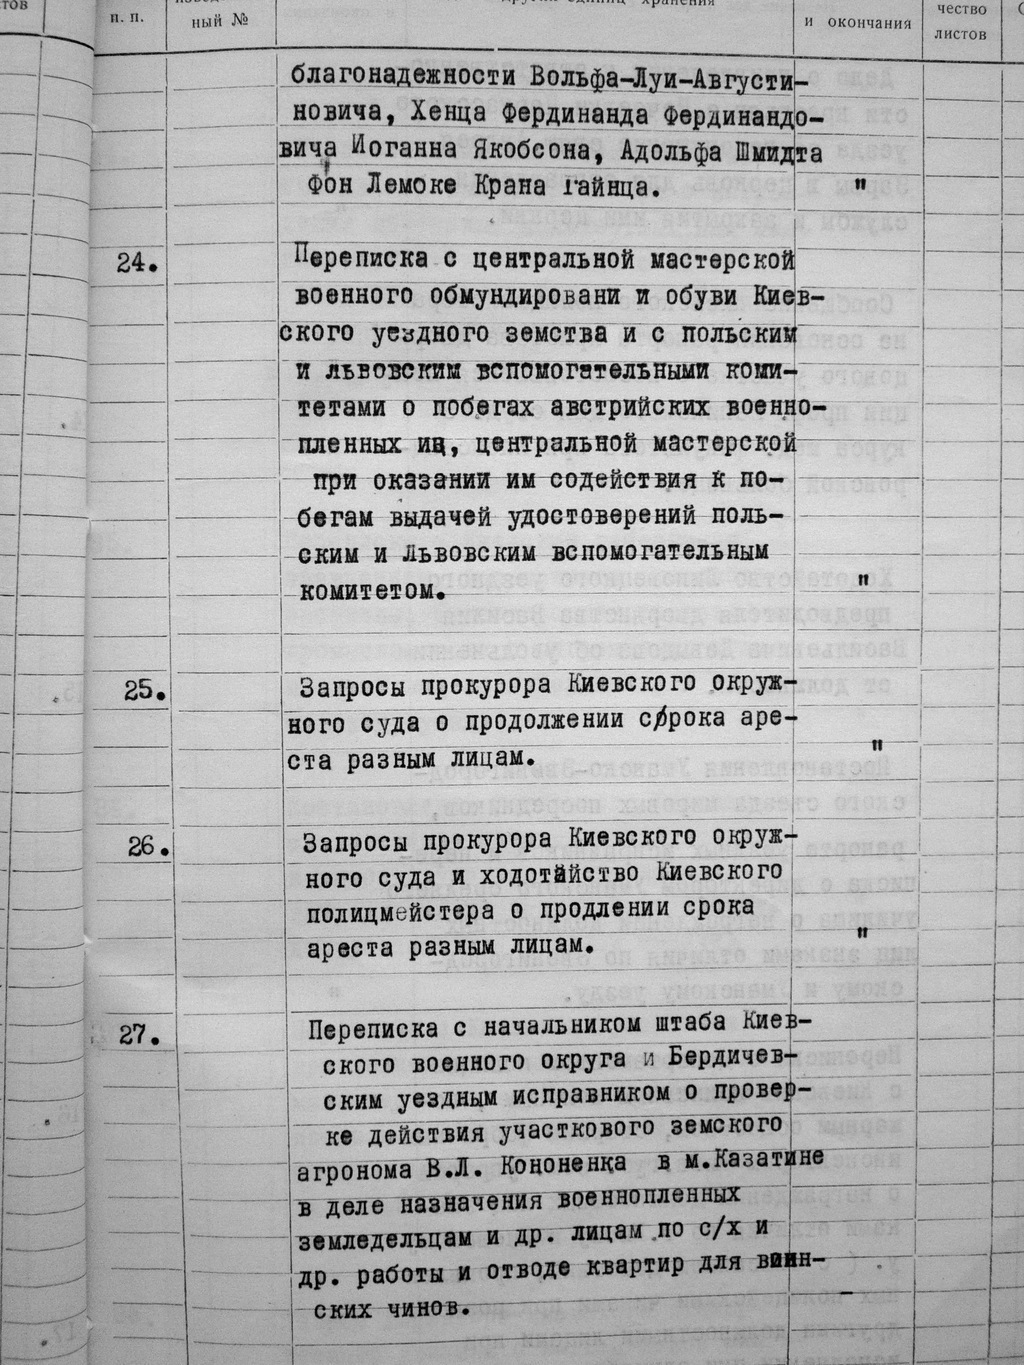 п. п.
ный №
других единиц хранения
и окончания
чество
листов
благонадежности Вольфа-Луи-Августи-
новича, Хенца Фердинанда Фердинандо-
вича Иоганна Якобсона, Адольфа Шмидта
Фон Лемоке Крана Гайнца. "
24. Переписка с центральной мастерской
военного обмундировани и обуви Киев-
ского уездного земства и с польским
и львовским вспомогательными коми-
тетами о побегах австрийских военно-
пленных иц, центральной мастерской
при оказании им содействия к по-
бегам выдачей удостоверений поль-
ским и Львовским вспомогательным
комитетом. "
25. Запросы прокурора Киевского окруж-
ного суда о продолжении с/рока аре-
ста разным лицам. "
26. Запросы прокурора Киевского окруж-
ного суда и ходотайство Киевского
полицмейстера о продлении срока
ареста разным лицам. "
27. Переписка с начальником штаба Киев-
ского военного округа и Бердичев-
ским уездным исправником о провер-
ке действия участкового земского
агронома В.Л. Кононенка в м.Казатине
в деле назначения военнопленных
земледельцам и др. лицам по с/х и
др. работы и отводе квартир для воин-
ских чинов. –